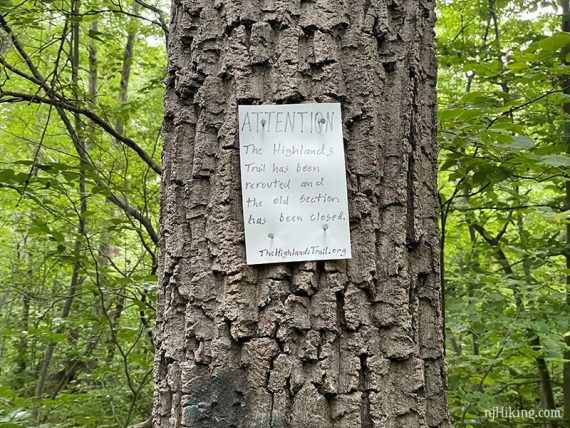 ATTENTION
The Highlands
Trail has been
rerouted and
the old section
has been closed.
TheHighlandsTrail.org
njHiking.com